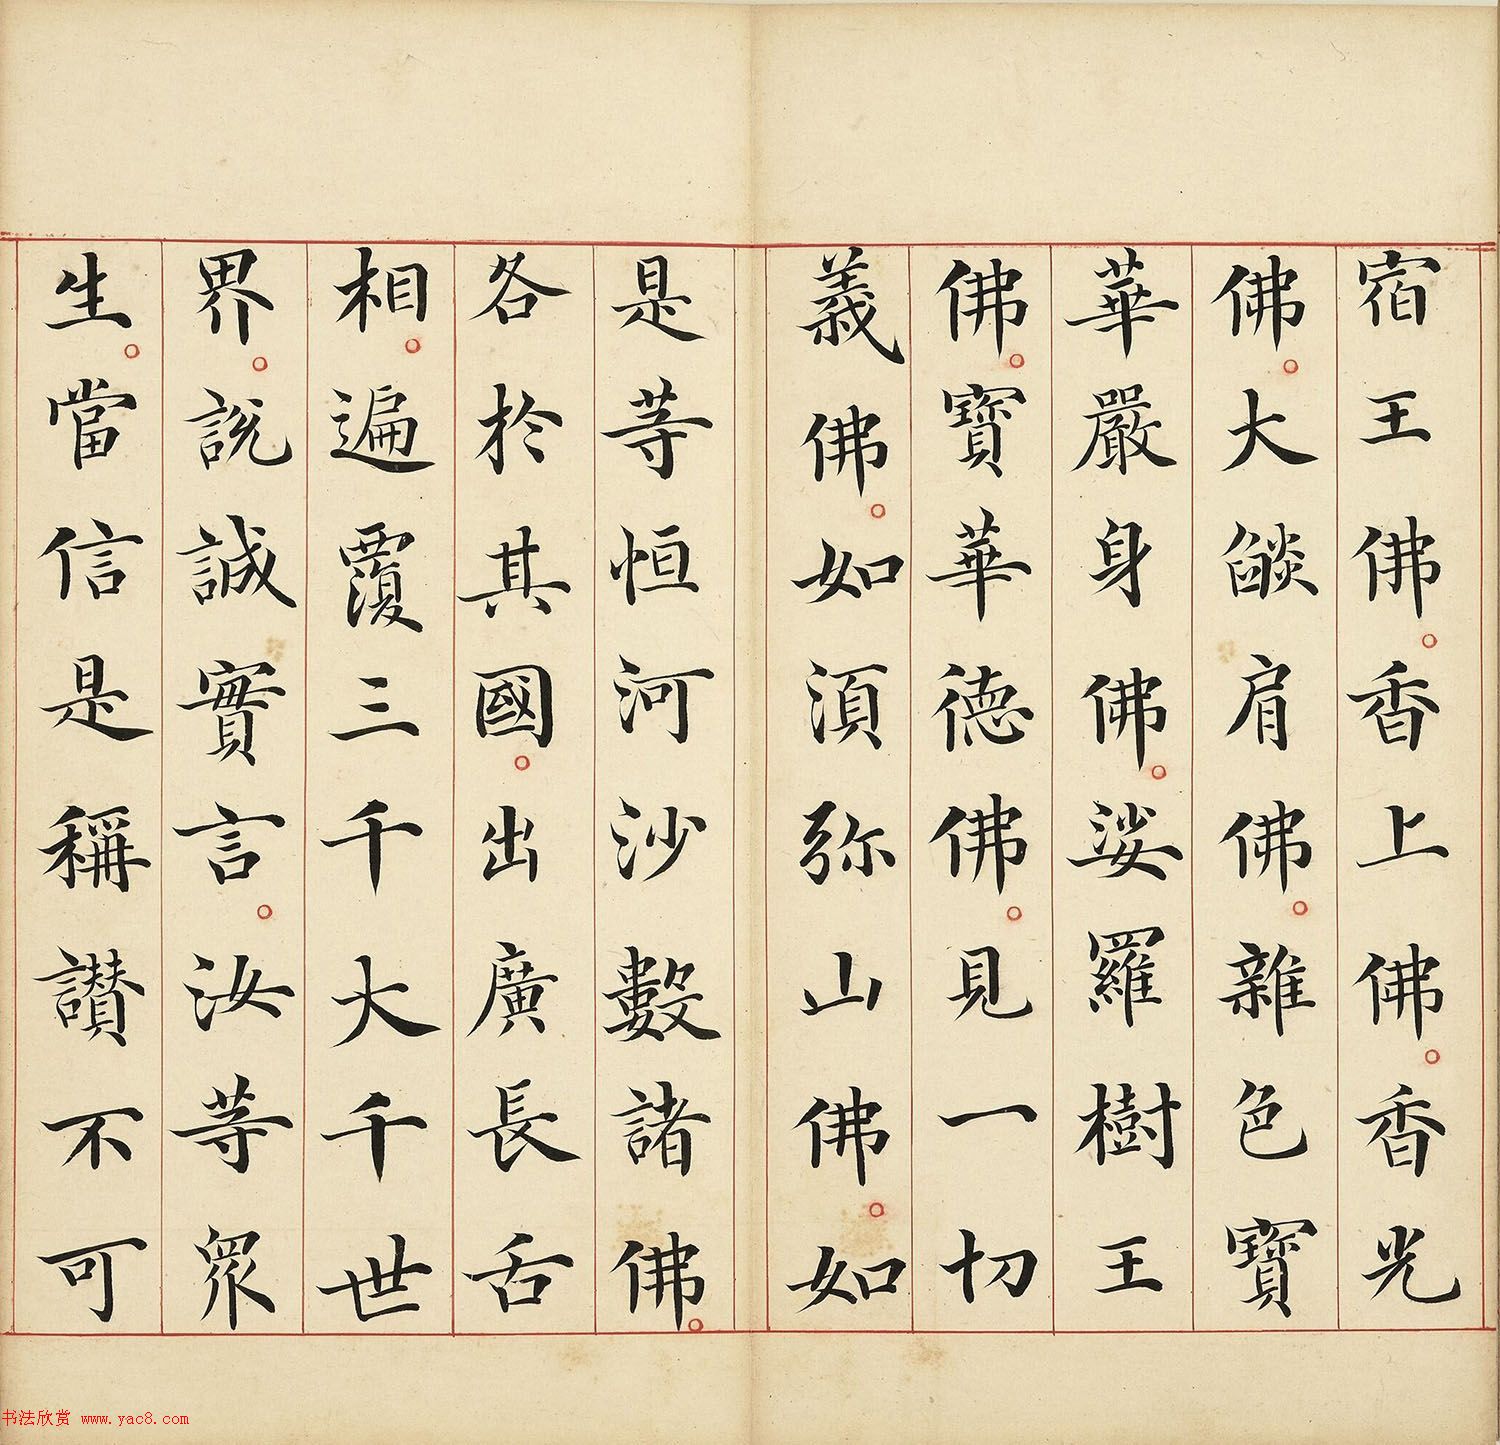 宿王佛。香上佛。香光
佛。大燄肩佛。雜色寶
華嚴身佛。娑羅樹王
佛。寶華德佛。見一切
義佛。如須弥山佛。如
是等恒河沙數諸佛。
各於其國。出廣長舌
相。遍覆三千大千世
界。說誠實言。汝等眾
生。當信是稱讚不可
书法欣赏 www.yac8.com